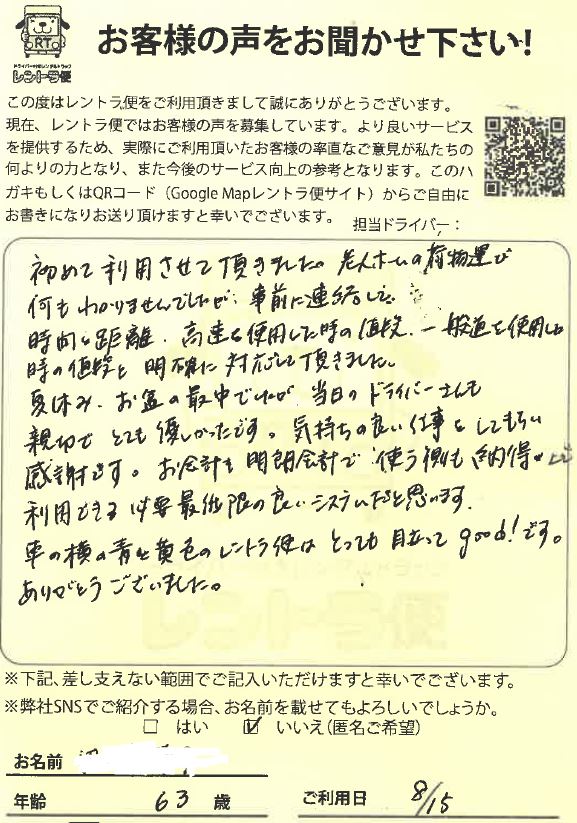 RT
ドライバー付きレンタルトラック
レントラ便
お客様の声をお聞かせ下さい!
この度はレントラ便をご利用頂きまして誠にありがとうございます。
現在、レントラ便ではお客様の声を募集しています。より良いサービス
を提供するため、実際にご利用頂いたお客様の率直なご意見が私たちの
何よりの力となり、また今後のサービス向上の参考となります。このハ
ガキもしくはQRコード（Google Mapレントラ便サイト）からご自由に
お書きになりお送り頂けますと幸いでございます。
担当ドライバー：
初めて利用させて頂きました。老人ホームの荷物運び
何もわかりませんでしたが、事前に連絡して、
時間と距離、高速を使用した時の値段、一般道を使用した
時の値段と明確に対応して頂きました。
夏休み、お盆の最中でしたが、当日のドライバーさんも
親切でとても優しかったです。気持ちの良い仕事としてもらい
感謝です。お会計も明朗会計で使う側も納得して
利用できる必要最低限の良いシステムだと思います。
車の横の青と黄色のレントラ便はとっても目立ってgood!です。
ありがとうございました。
レントラ便
※下記、差し支えない範囲でご記入いただけますと幸いでございます。
※弊社SNSでご紹介する場合、お名前を載せてもよろしいでしょうか。
□ はい ☑ いいえ(匿名ご希望)
お名前
年齢 63 歳 ご利用日 8/15